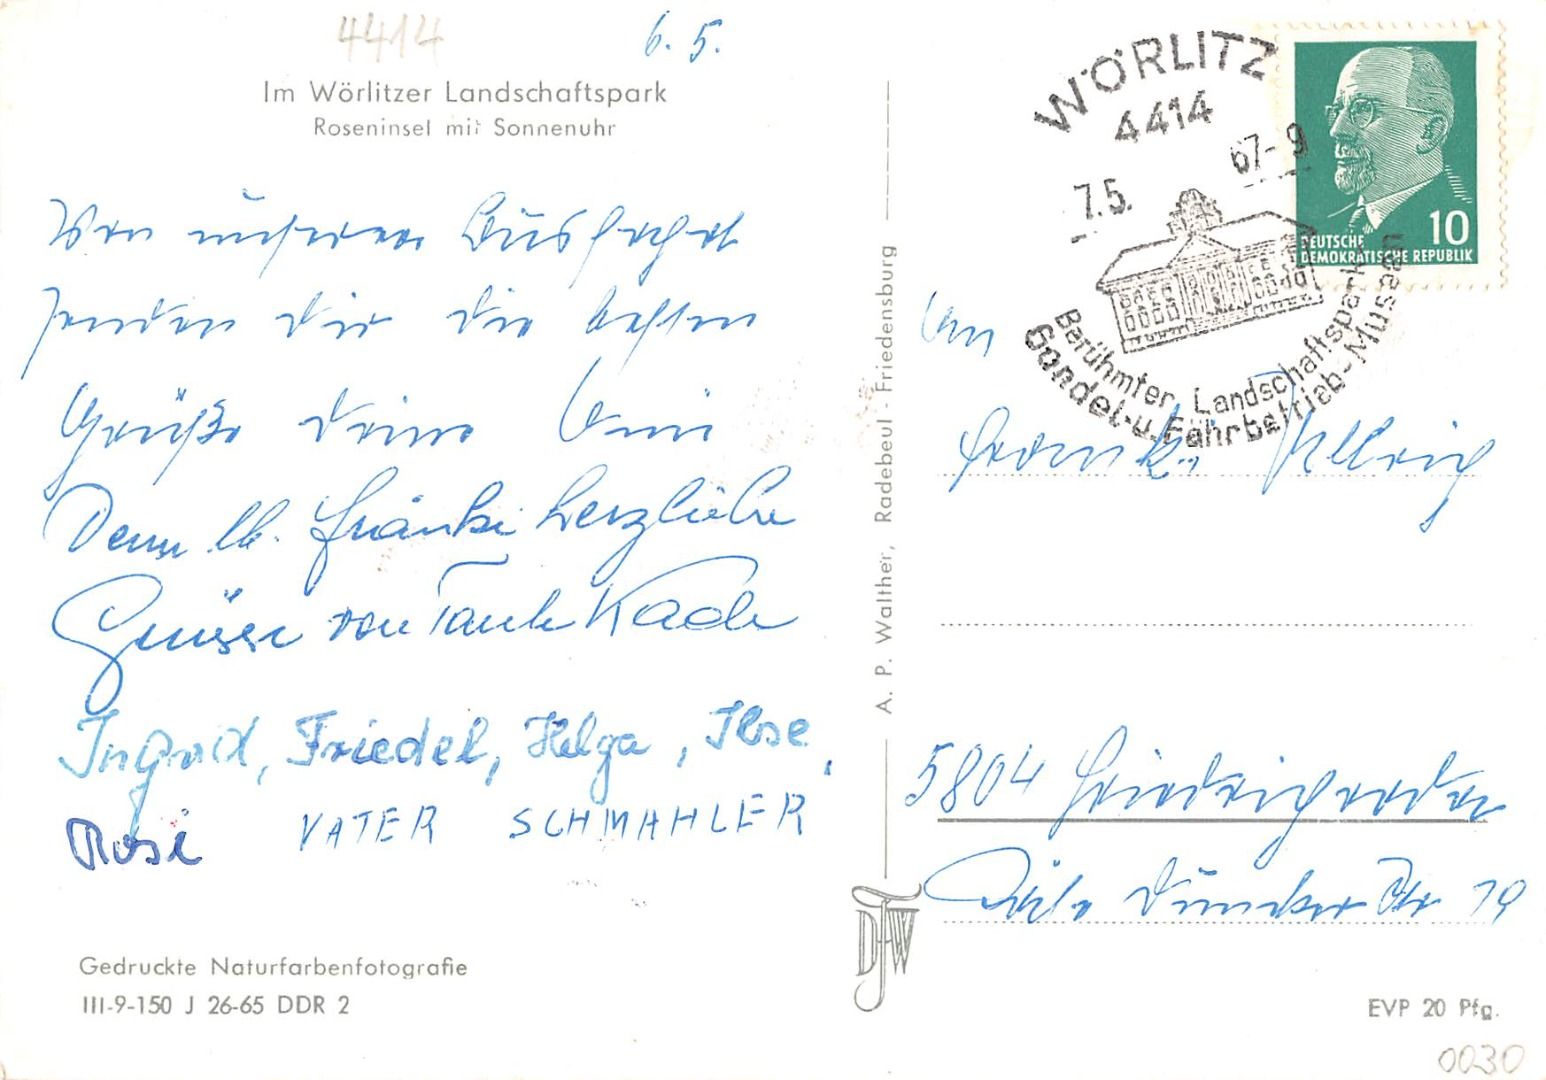 4414
6. 5.
Im Wörlitzer Landschaftspark
Roseninsel mit Sonnenuhr
Von unserer Busfahrt
senden dir die besten
Grüße deine Omi
Dem lb. Fränki herzliche
Grüsse von Tante Kade
Ingrid, Friedel, Helga, Ilse,
Rosi VATER SCHMAHLER
Gedruckte Naturfarbenfotografie
III-9-150 J 26-65 DDR 2
A. P. Walther, Radebeul - Friedensburg
WÖRLITZ
4414
7.5. 67-9
Berühmter Landschaftspark
Gondel- u. Fährbetrieb-Museen
10
DEUTSCHE
DEMOKRATISCHE REPUBLIK
An
Franki Ullrich
5804 Friedrichroda
Käte Duncker Str 19
EVP 20 Pfg.
0030